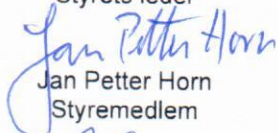 Styrets leder
Jan Petter Horn
Jan Petter Horn
Styremedlem